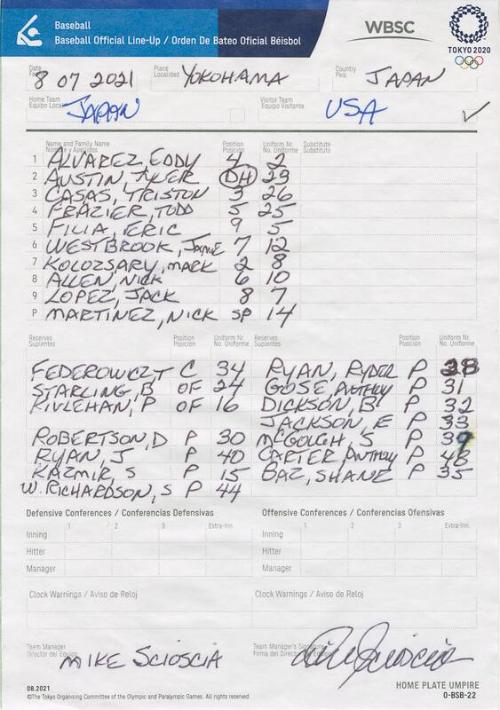 Baseball
Baseball Official Line-Up / Orden De Bateo Oficial Béisbol
WBSC
TOKYO 2020
Date
8 07 2021
Place
Localidad
YOKOHAMA
Country
País
JAPAN
Home Team
Equipo Local
JAPAN
Visitor Team
Equipo Visitante
USA
Name and Family Name
Position
Posición
Uniform Nr.
No. Uniforme
Substitute
Substituto
1 ALVAREZ, EDDY 4 2
2 AUSTIN, TYLER DH 23
3 CASAS, TRISTON 3 26
4 FRAZIER, TODD 5 25
5 FILIA, ERIC 9 5
6 WESTBROOK, JAMIE 7 12
7 KOLOZSARY, MARK 2 8
8 ALLEN, NICK 6 10
9 LOPEZ, JACK 8 7
P MARTINEZ, NICK SP 14
Reserves
Suplentes
Position
Posición
Uniform Nr.
No. Uniforme
Reserves
Suplentes
Position
Posición
Uniform Nr.
No. Uniforme
FEDEROWCZT C 34 RYAN, RYDER P 28
STARLING, B OF 24 GOSE, ANTHONY P 31
KIVLEHAN, P OF 16 DICKSON, B P 32
JACKSON, E P 33
ROBERTSON, D P 30 McGOUGH, S P 39
RYAN, J P 40 CARTER, ANTHONY P 48
KAZMIR, S P 15 BAZ, SHANE P 35
W. RICHARDSON, S P 44
Defensive Conferences / Conferencias Defensivas
Offensive Conferences / Conferencias Ofensivas
1 2 3 Extra-Inn. 1 2 3 Extra-Inn.
Inning Inning
Hitter Hitter
Manager Manager
Clock Warnings / Aviso de Reloj Clock Warnings / Aviso de Reloj
Team Manager
Director del Equipo
MIKE SCIOSCIA
Team Manager's Signature
Firma del Director del Equipo
Mike Scioscia
08.2021
©The Tokyo Organising Committee of the Olympic and Paralympic Games. All rights reserved.
HOME PLATE UMPIRE
O-BSB-22